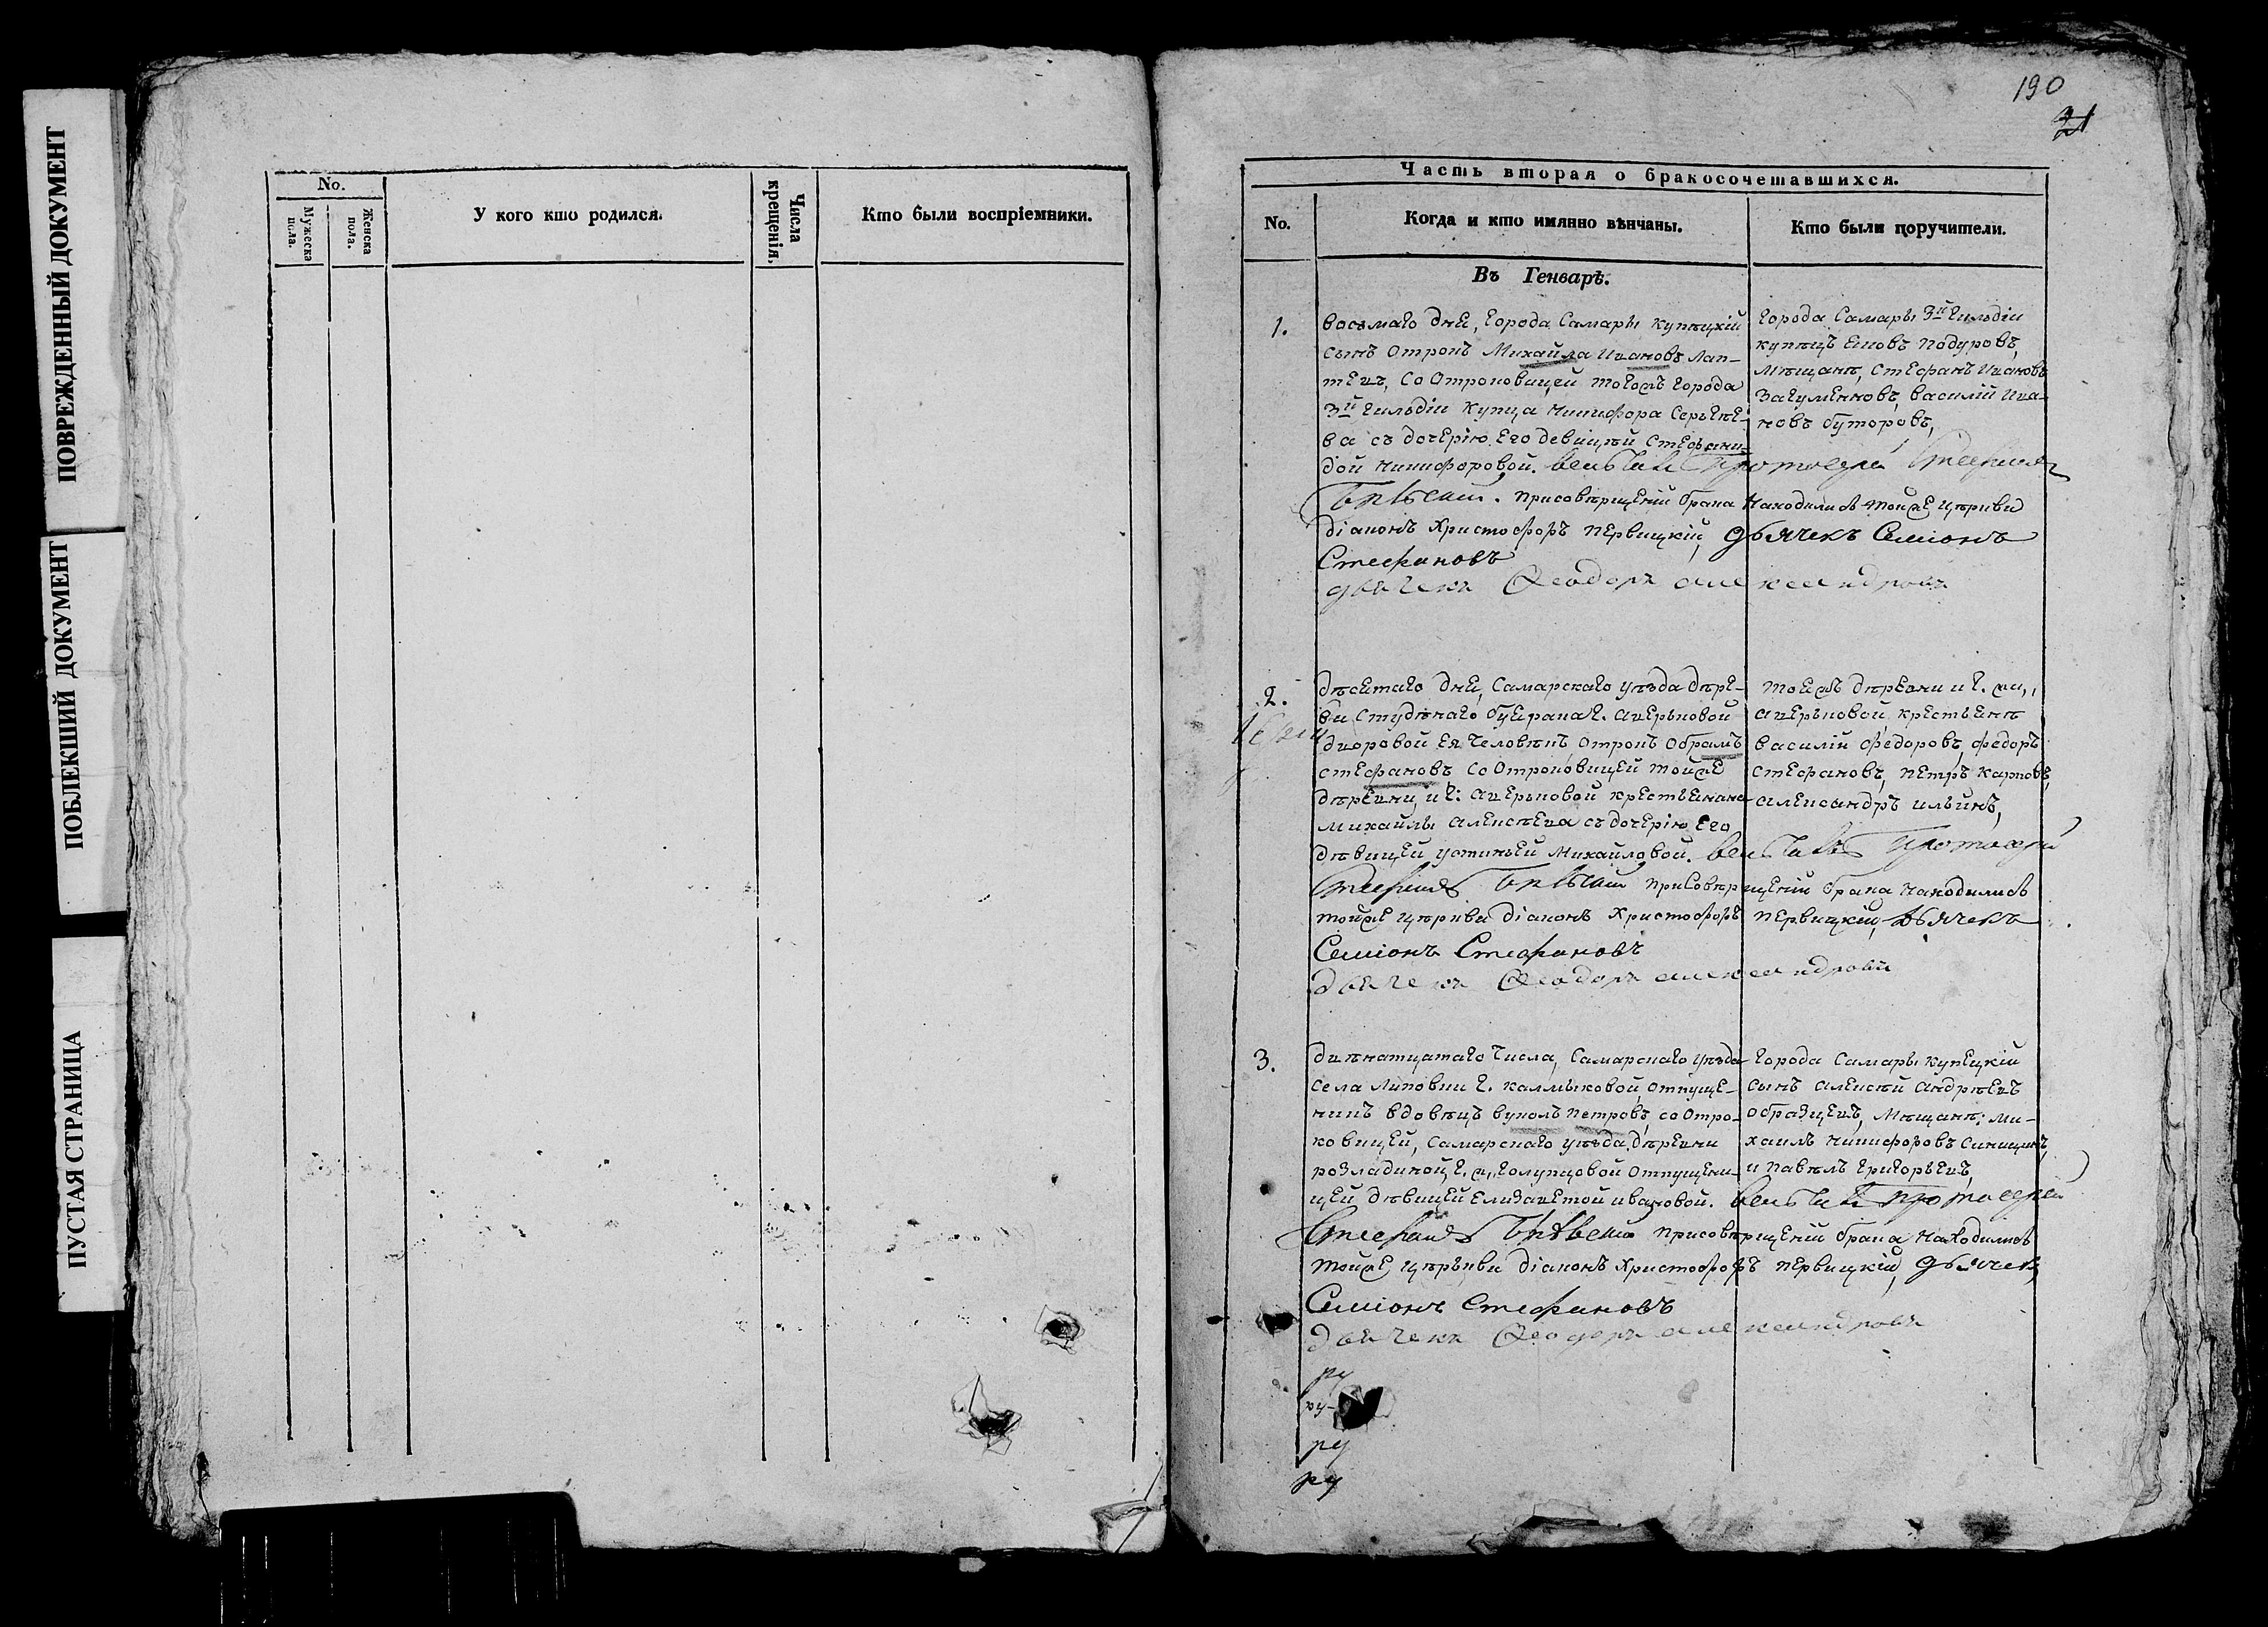 ПОВРЕЖДЕННЫЙ ДОКУМЕНТ
ПОБЛЕКШИЙ ДОКУМЕНТ
ПУСТАЯ СТРАНИЦА
No.
Мужеска пола.
Женска пола.
У кого кто родился.
Числа крещенія.
Кто были воспріемники.
190
21
Часть вторая о бракосочетавшихся.
No.
Когда и кто имянно вѣнчаны.
Кто были поручители.
Въ Генварѣ.
1.
восьмаго дне, города Самары купѣцкій
сынъ отрокъ Михайла Ивановъ Лап-
тевъ, со отроковицей тогожъ города
3й гильдіи купца Никифора Сергѣе-
ва съ дочерію его девицѣй Стефани-
дой Никифоровой. венчалъ Протоерей Стефанъ
присовѣршеніи брака находились тойже цѣркви
діаконъ Христофоръ Пѣрвицкій, дьячекъ Семіонъ
Стефановъ
дьячекъ Феодоръ Александровъ
города Самары 3й гильдіи
купѣцъ Подуровъ,
мѣщанѣ, Стефанъ Ивановъ
Загуменновъ, василій Ива-
новъ буторовъ,
2.
дѣсятаго дне, Самарскаго уѣзда дѣре-
ви Студѣнаго буерака г. Аверьковой
дворовой ея человѣкъ отрокъ Обрамъ
Стефановъ со отроковицей тойже
дѣревни и г: Аверьковой крестьянина
Михайлы Алексѣева съ дочерію его
дѣвицей устиньей Михайловой. венчалъ Протоерей
Стефанъ присовѣршеніи брака находились
тойже цѣркви діаконъ Христофоръ Пѣрвицкій, дьячекъ
Семіонъ Стефановъ
дьячекъ Феодоръ Александровъ
тоежъ дѣревни и г.
Аверьковой крестьянѣ
василій Федоровъ, Федоръ
Стефановъ, Петръ Карповъ,
Александръ Ильинъ,
3.
двѣнатцатаго числа, Самарскаго уѣзда
села Липовки г. Калмыковой отпуще-
никъ вдовѣцъ вуколъ Петровъ, со отро-
ковицей, Самарскаго уѣзда дѣревни
розладиной г. Голупцовой отпущени-
цей дѣвицей Елизаветой ивановой. венчалъ Протоерей
Стефанъ присовѣршеніи брака находились
тойже цѣркви діаконъ Христофоръ Пѣрвицкій, дьячекъ
Семіонъ Стефановъ
дьячекъ Феодоръ Александровъ
города Самары купецкій
сынъ Алексѣй Андрѣевъ
образцевъ, мѣщанѣ: Ми-
хаилъ Никифоровъ Синицинъ,
и Павѣлъ Григорьевъ,
ру
ру
ру
ру